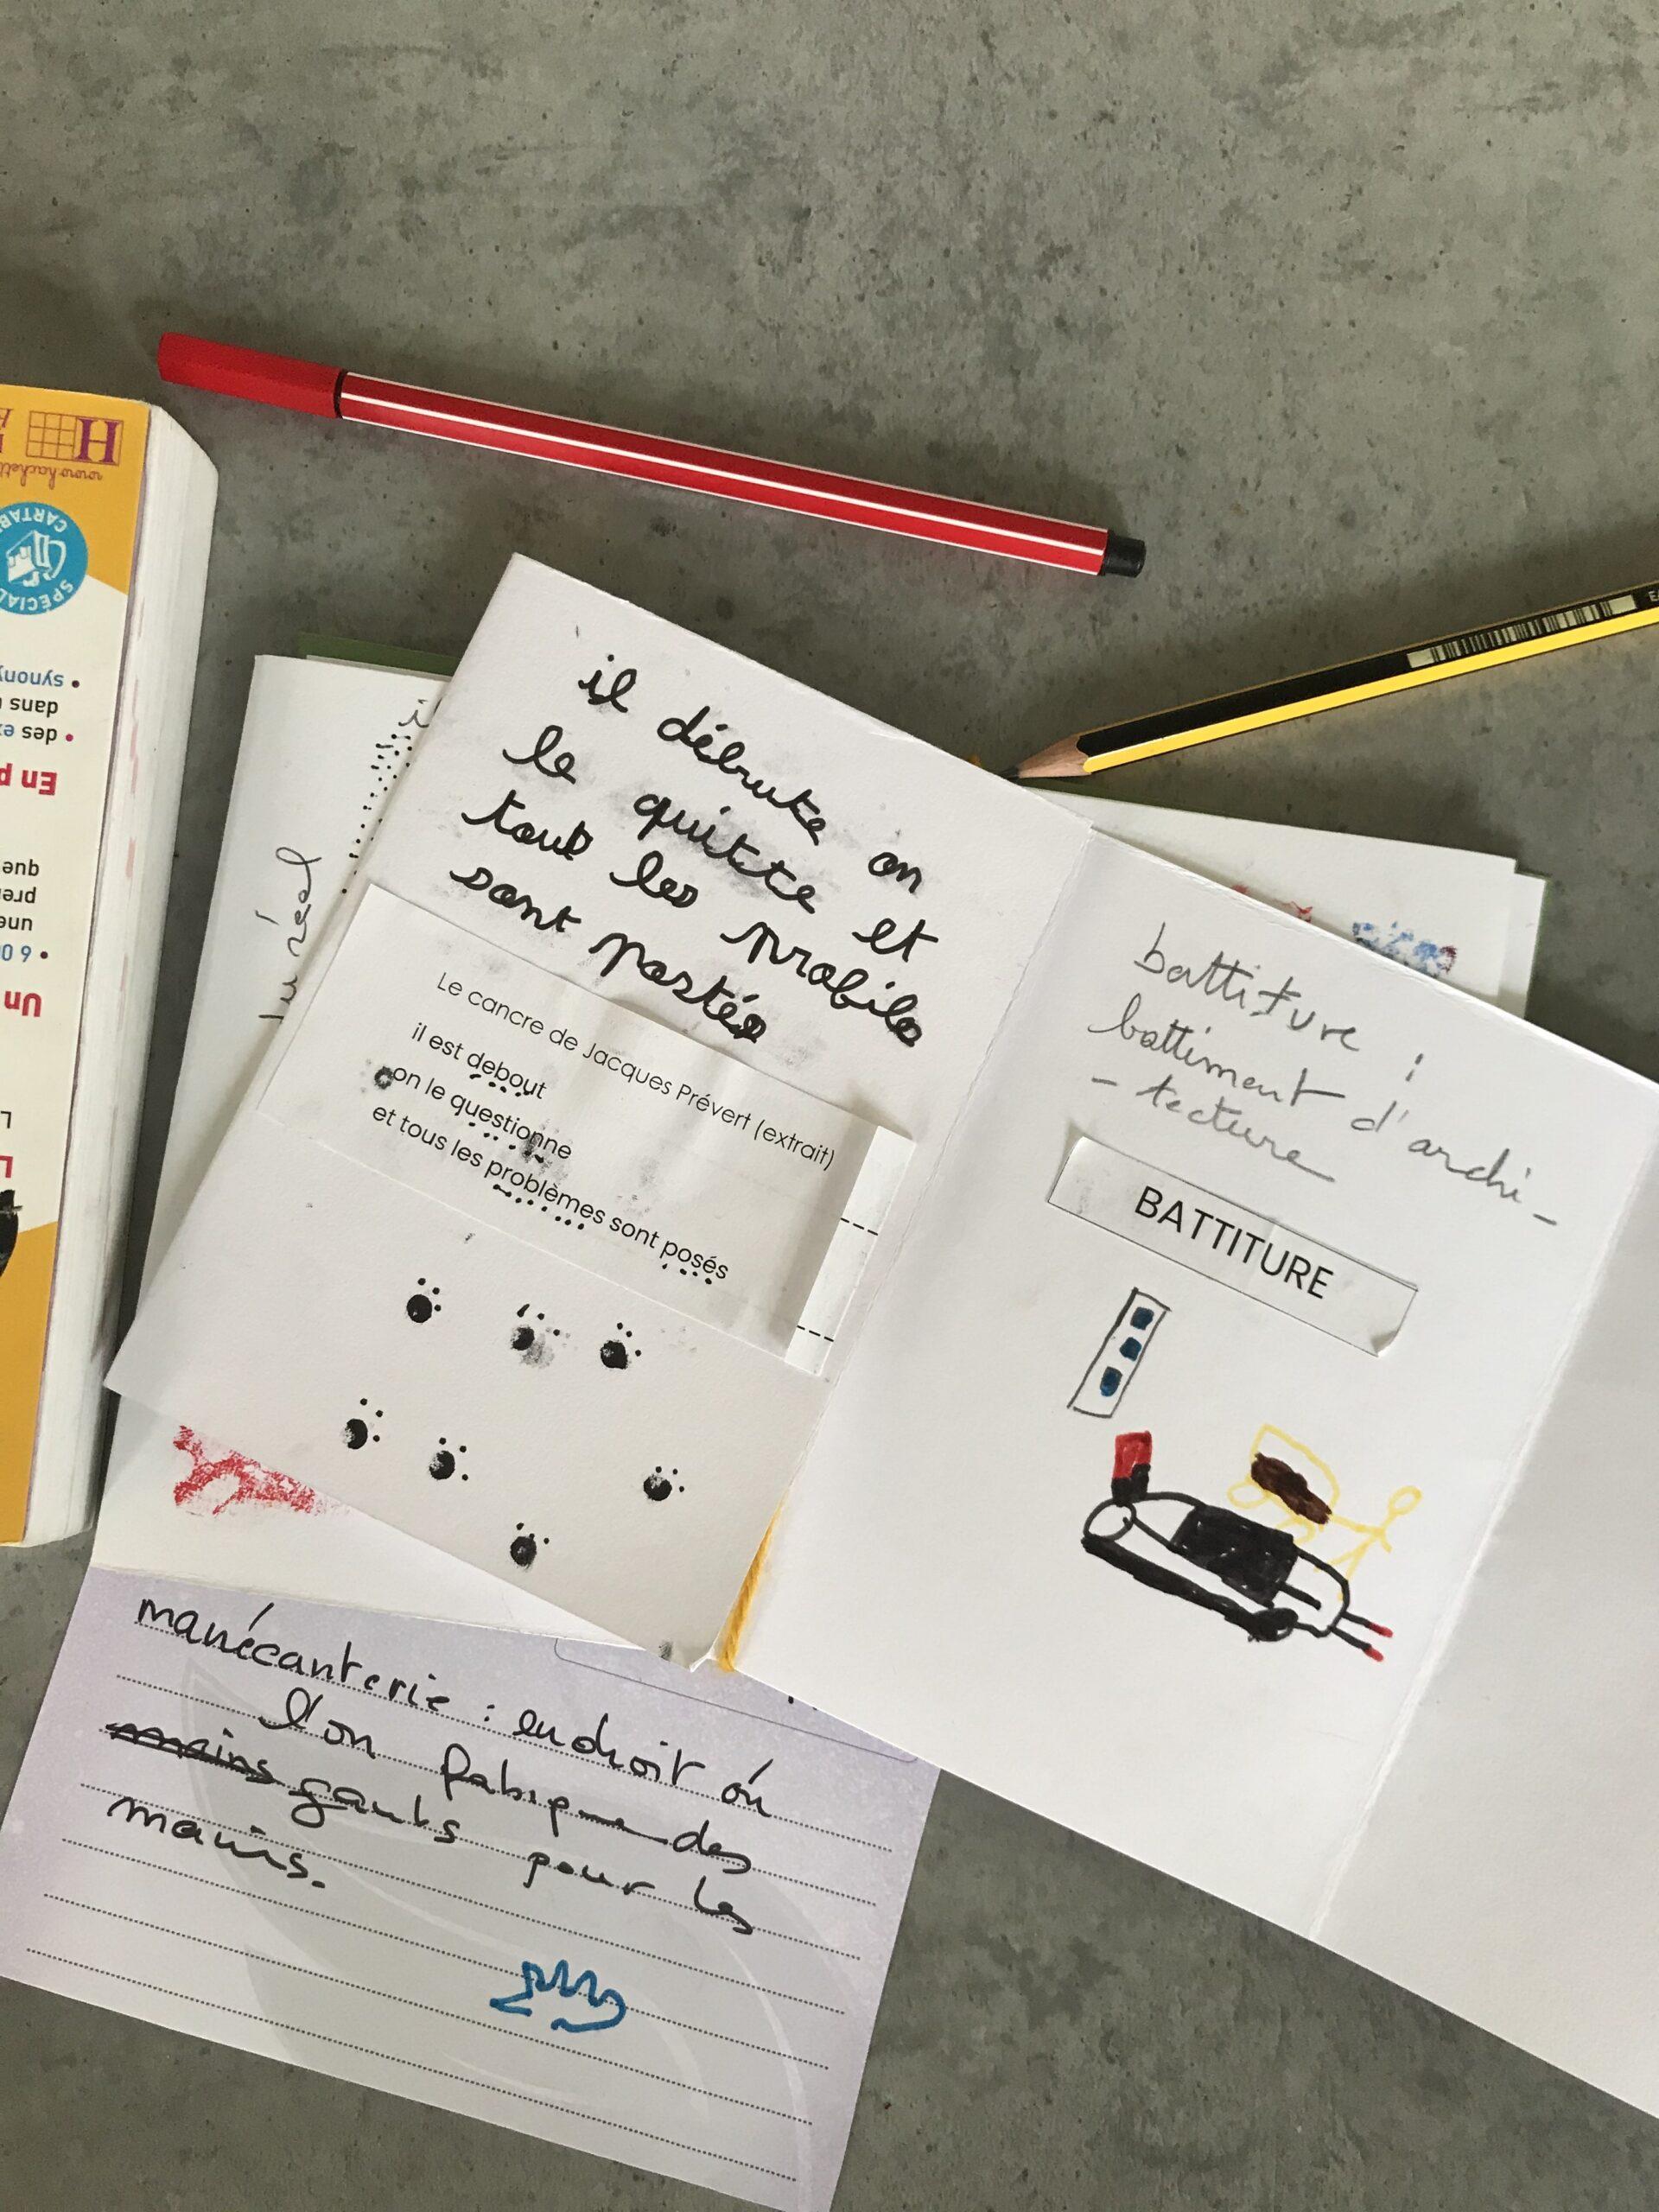 www.hachett
H
SPÉCIAL CARTABL
synony
dans
des ex
En p
que
pren
une
6 00
Un
il débute on
le quitte et
tout les probile
sont postés
Le cancre de Jacques Prévert (extrait)
il est debout
on le questionne
et tous les problèmes sont posés
battiture :
battiment d'archi-
- tecture
BATTITURE
manécanterie : endroit où
l'on fabique des
mains gants pour les
mains.